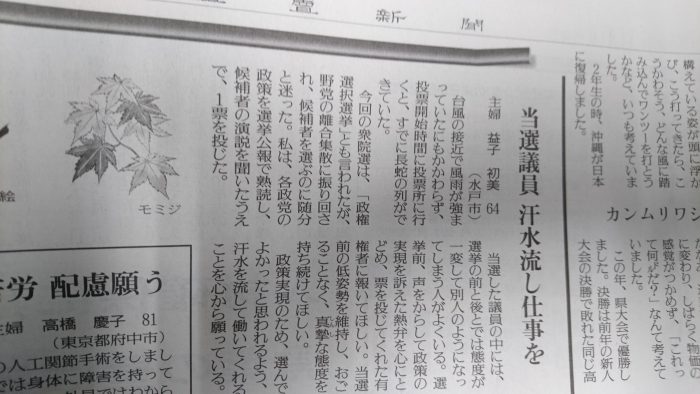 賣新聞
構えている姿が頭に浮か
び、こう打って来たら、こ
うかわそう、どんな風に踏
み込んでワンツーを打とう
かなど、いつも考えていま
した。
2年生の時、沖縄が日本
に復帰しました。
カンムリワシ
に変わり、しばらく物価の
感覚がつかめず、「これっ
て何㌦だ?」なんて考えて
いました。
この年、県大会で優勝し
ました。決勝は前年の新人
大会の決勝で敗れた同じ高
当選議員 汗水流し仕事を
主婦 益子 初美 64
(水戸市)
台風の接近で風雨が強ま
っていたにもかかわらず、
投票開始時間に投票所に行
くと、すでに長蛇の列がで
きていた。
今回の衆院選は、「政権
選択選挙」とも言われたが、
野党の離合集散に振り回さ
れ、候補者を選ぶのに随分
と迷った。私は、各政党の
政策を選挙公報で熟読し、
候補者の演説を聞いたうえ
で、1票を投じた。
当選した議員の中には、
選挙の前と後とでは態度が
一変して別人のようになっ
てしまう人がよくいる。選
挙前、声をからして政策の
実現を訴えた熱弁を心にと
どめ、票を投じてくれた有
権者に報いてほしい。当選
前の低姿勢を維持し、おご
ることなく、真摯な態度を
しんし
持ち続けてほしい。
政策実現のため、選んで
よかったと思われるよう、
汗水を流して働いてくれる
ことを心から願っている。
モミジ
絵
労 配慮願う
主婦 高橋 慶子 81
(東京都府中市)
の人工関節手術をしまし
では身体に障害を持って